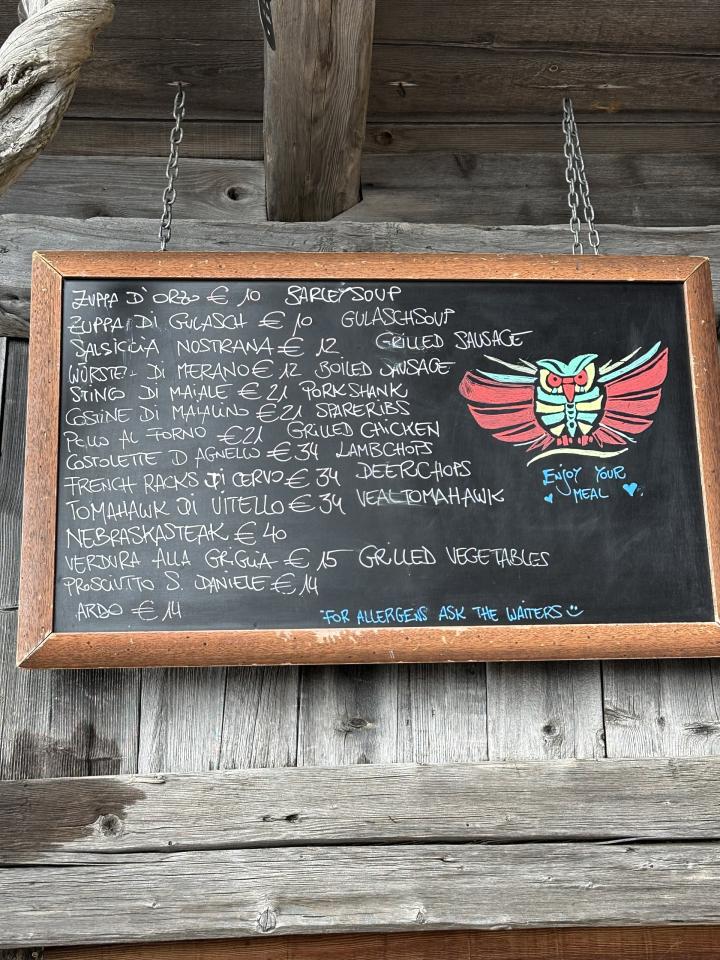 ZUPPA D'ORZO € 10 BARLEYSOUP
ZUPPA DI GULASCH € 10 GULASCHSOUP
SALSICCIA NOSTRANA € 12 GRILLED SAUSAGE
WÜRSTEL DI MERANO € 12 BOILED SAUSAGE
STINCO DI MAIALE € 21 PORKSHANK
COSTINE DI MAIALINO € 21 SPARERIBS
POLLO AL FORNO € 21 GRILLED CHICKEN
COSTOLETTE D AGNELLO € 34 LAMBCHOPS
FRENCH RACKS DI CERVO € 34 DEERCHOPS
TOMAHAWK DI VITELLO € 34 VEALTOMAHAWK
NEBRASKASTEAK € 40
VERDURA ALLA GRIGLIA € 15 GRILLED VEGETABLES
PROSCIUTTO S. DANIELE € 14
€ 14
ENJOY YOUR
MEAL
FOR ALLERGENS ASK THE WAITERS